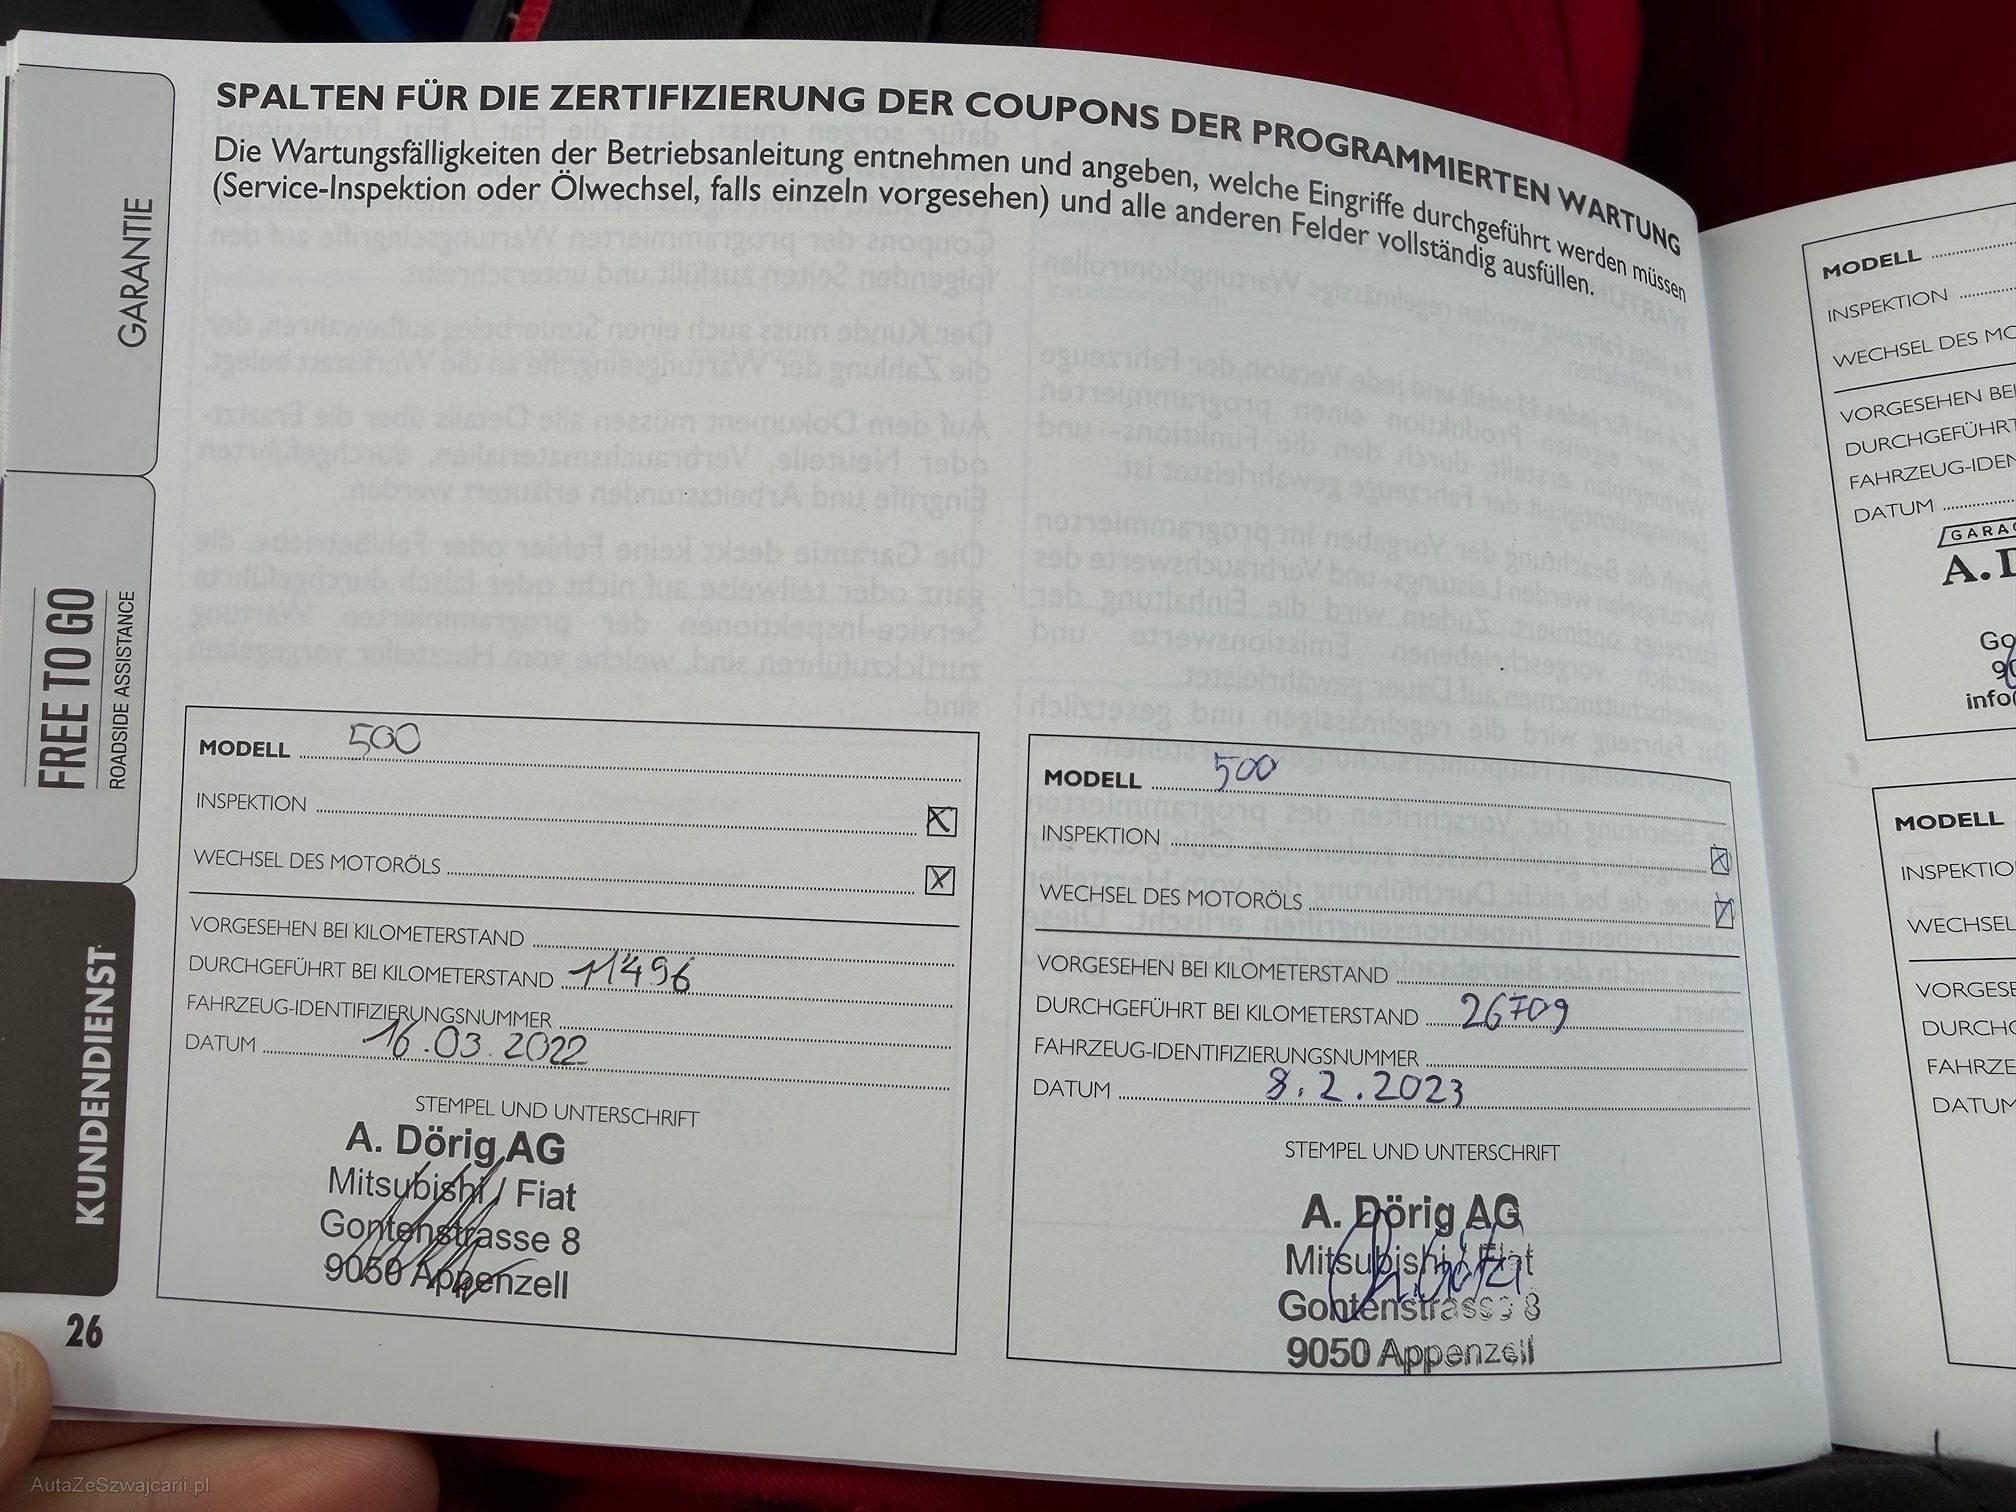 SPALTEN FÜR DIE ZERTIFIZIERUNG DER COUPONS DER PROGRAMMIERTEN WARTUNG
Die Wartungsfälligkeiten der Betriebsanleitung entnehmen und angeben, welche Eingriffe durchgeführt werden müssen
(Service-Inspektion oder Ölwechsel, falls einzeln vorgesehen) und alle anderen Felder vollständig ausfüllen.
GARANTIE
FREE TO GO
ROADSIDE ASSISTANCE
KUNDENDIENST
26
MODELL 500
INSPEKTION X
WECHSEL DES MOTORÖLS X
VORGESEHEN BEI KILOMETERSTAND
DURCHGEFÜHRT BEI KILOMETERSTAND 11496
FAHRZEUG-IDENTIFIZIERUNGSNUMMER
DATUM 16.03.2022
STEMPEL UND UNTERSCHRIFT
A. Dörig AG
Mitsubishi / Fiat
Gontenstrasse 8
9050 Appenzell
MODELL 500
INSPEKTION X
WECHSEL DES MOTORÖLS X
VORGESEHEN BEI KILOMETERSTAND
DURCHGEFÜHRT BEI KILOMETERSTAND 26709
FAHRZEUG-IDENTIFIZIERUNGSNUMMER
DATUM 8.2.2023
STEMPEL UND UNTERSCHRIFT
A. Dörig AG
Mitsubishi / Fiat
Gontenstrasse 8
9050 Appenzell
MODELL
INSPEKTION
WECHSEL DES MO
VORGESEHEN BEI
DURCHGEFÜHRT
FAHRZEUG-IDEN
DATUM
GARA
A. D
Go
90
info
MODELL
INSPEKTIO
WECHSEL
VORGESE
DURCHG
FAHRZE
DATUM
AutaZeSzwajcarii.pl